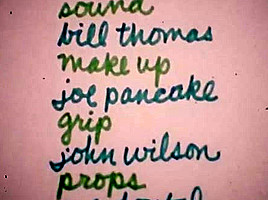 sound
bill thomas
make up
joe pancake
grip
john wilson
props